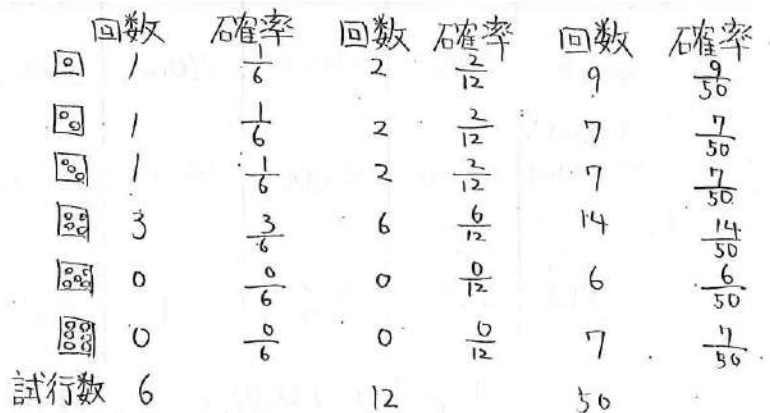 回数 確率 回数 確率 回数 確率
1 1/6 2 2/12 9 9/50
1 1/6 2 2/12 7 7/50
1 1/6 2 2/12 7 7/50
3 3/6 6 6/12 14 14/50
0 0/6 0 0/12 6 6/50
0 0/6 0 0/12 7 7/50
試行数 6 12 50